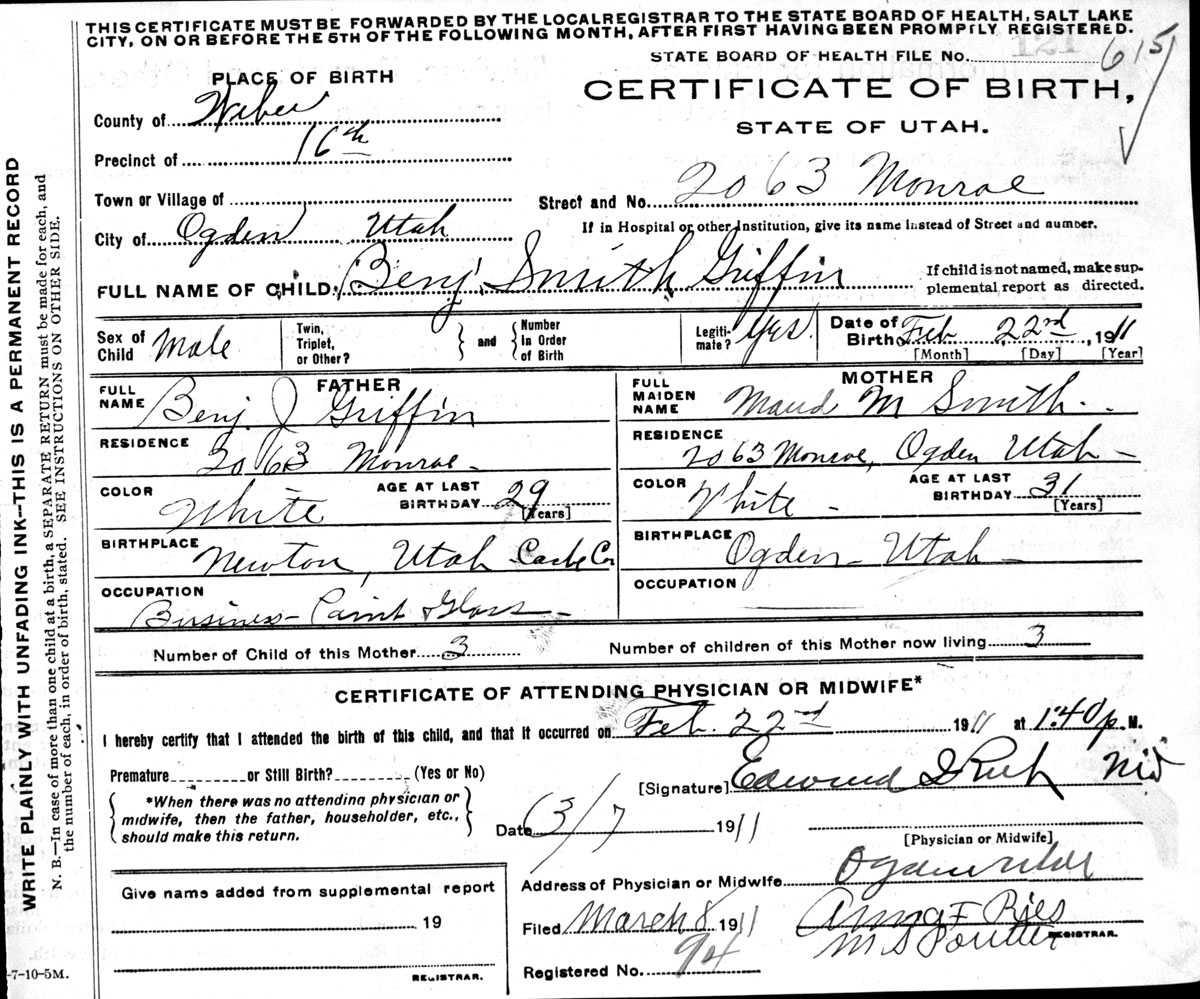 THIS CERTIFICATE MUST BE FORWARDED BY THE LOCAL REGISTRAR TO THE STATE BOARD OF HEALTH, SALT LAKE
CITY, ON OR BEFORE THE 5TH OF THE FOLLOWING MONTH, AFTER FIRST HAVING BEEN PROMPTLY REGISTERED.
STATE BOARD OF HEALTH FILE NO. 121 615
PLACE OF BIRTH
CERTIFICATE OF BIRTH,
STATE OF UTAH.
County of Weber
Precinct of 16th
Town or Village of
Street and No. 2063 Monroe
City of Ogden Utah
If in Hospital or other Institution, give its name instead of Street and number.
FULL NAME OF CHILD Benj. Smith Griffin
If child is not named, make sup-
plemental report as directed.
Sex of Child Male
Twin, Triplet, or Other?
and
Number In Order of Birth
Legiti-mate? Yes
Date of Birth Feb 22nd, 1911
[Month] [Day] [Year]
FATHER
FULL NAME Benj. J Griffin
RESIDENCE 2063 Monroe -
COLOR White
AGE AT LAST BIRTHDAY 29
[Years]
BIRTHPLACE Newton, Utah Cache Co
OCCUPATION
Business - Paint & Glass -
MOTHER
FULL MAIDEN NAME Maud M Smith -
RESIDENCE
2063 Monroe, Ogden Utah -
COLOR White -
AGE AT LAST BIRTHDAY 31
[Years]
BIRTHPLACE Ogden - Utah -
OCCUPATION
Number of Child of this Mother 3
Number of children of this Mother now living 3
CERTIFICATE OF ATTENDING PHYSICIAN OR MIDWIFE*
I hereby certify that I attended the birth of this child, and that it occurred on Feb. 22nd 1911 at 1:40 p. M.
Premature or Still Birth? (Yes or No)
*When there was no attending physician or
midwife, then the father, householder, etc.,
should make this return.
[Signature] Edward I Rich MD
Date 3/7 1911
[Physician or Midwife]
Give name added from supplemental report
19
REGISTRAR.
Address of Physician or Midwife Ogden Utah
Filed March 8 1911
Anna F Ries
REGISTRAR.
Registered No. 94
-7-10-5M.
WRITE PLAINLY WITH UNFADING INK—THIS IS A PERMANENT RECORD
N. B.—In case of more than one child at a birth, a SEPARATE RETURN must be made for each, and
the number of each, in order of birth, stated. SEE INSTRUCTIONS ON OTHER SIDE.